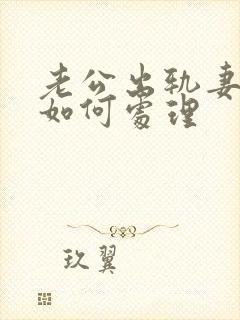 老公出轨妻
如何處理
玖翼